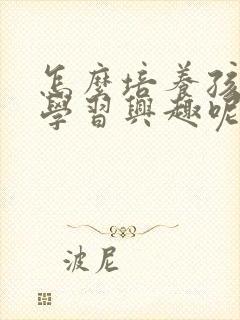 怎麼培養孩
學習興趣呢
波尼